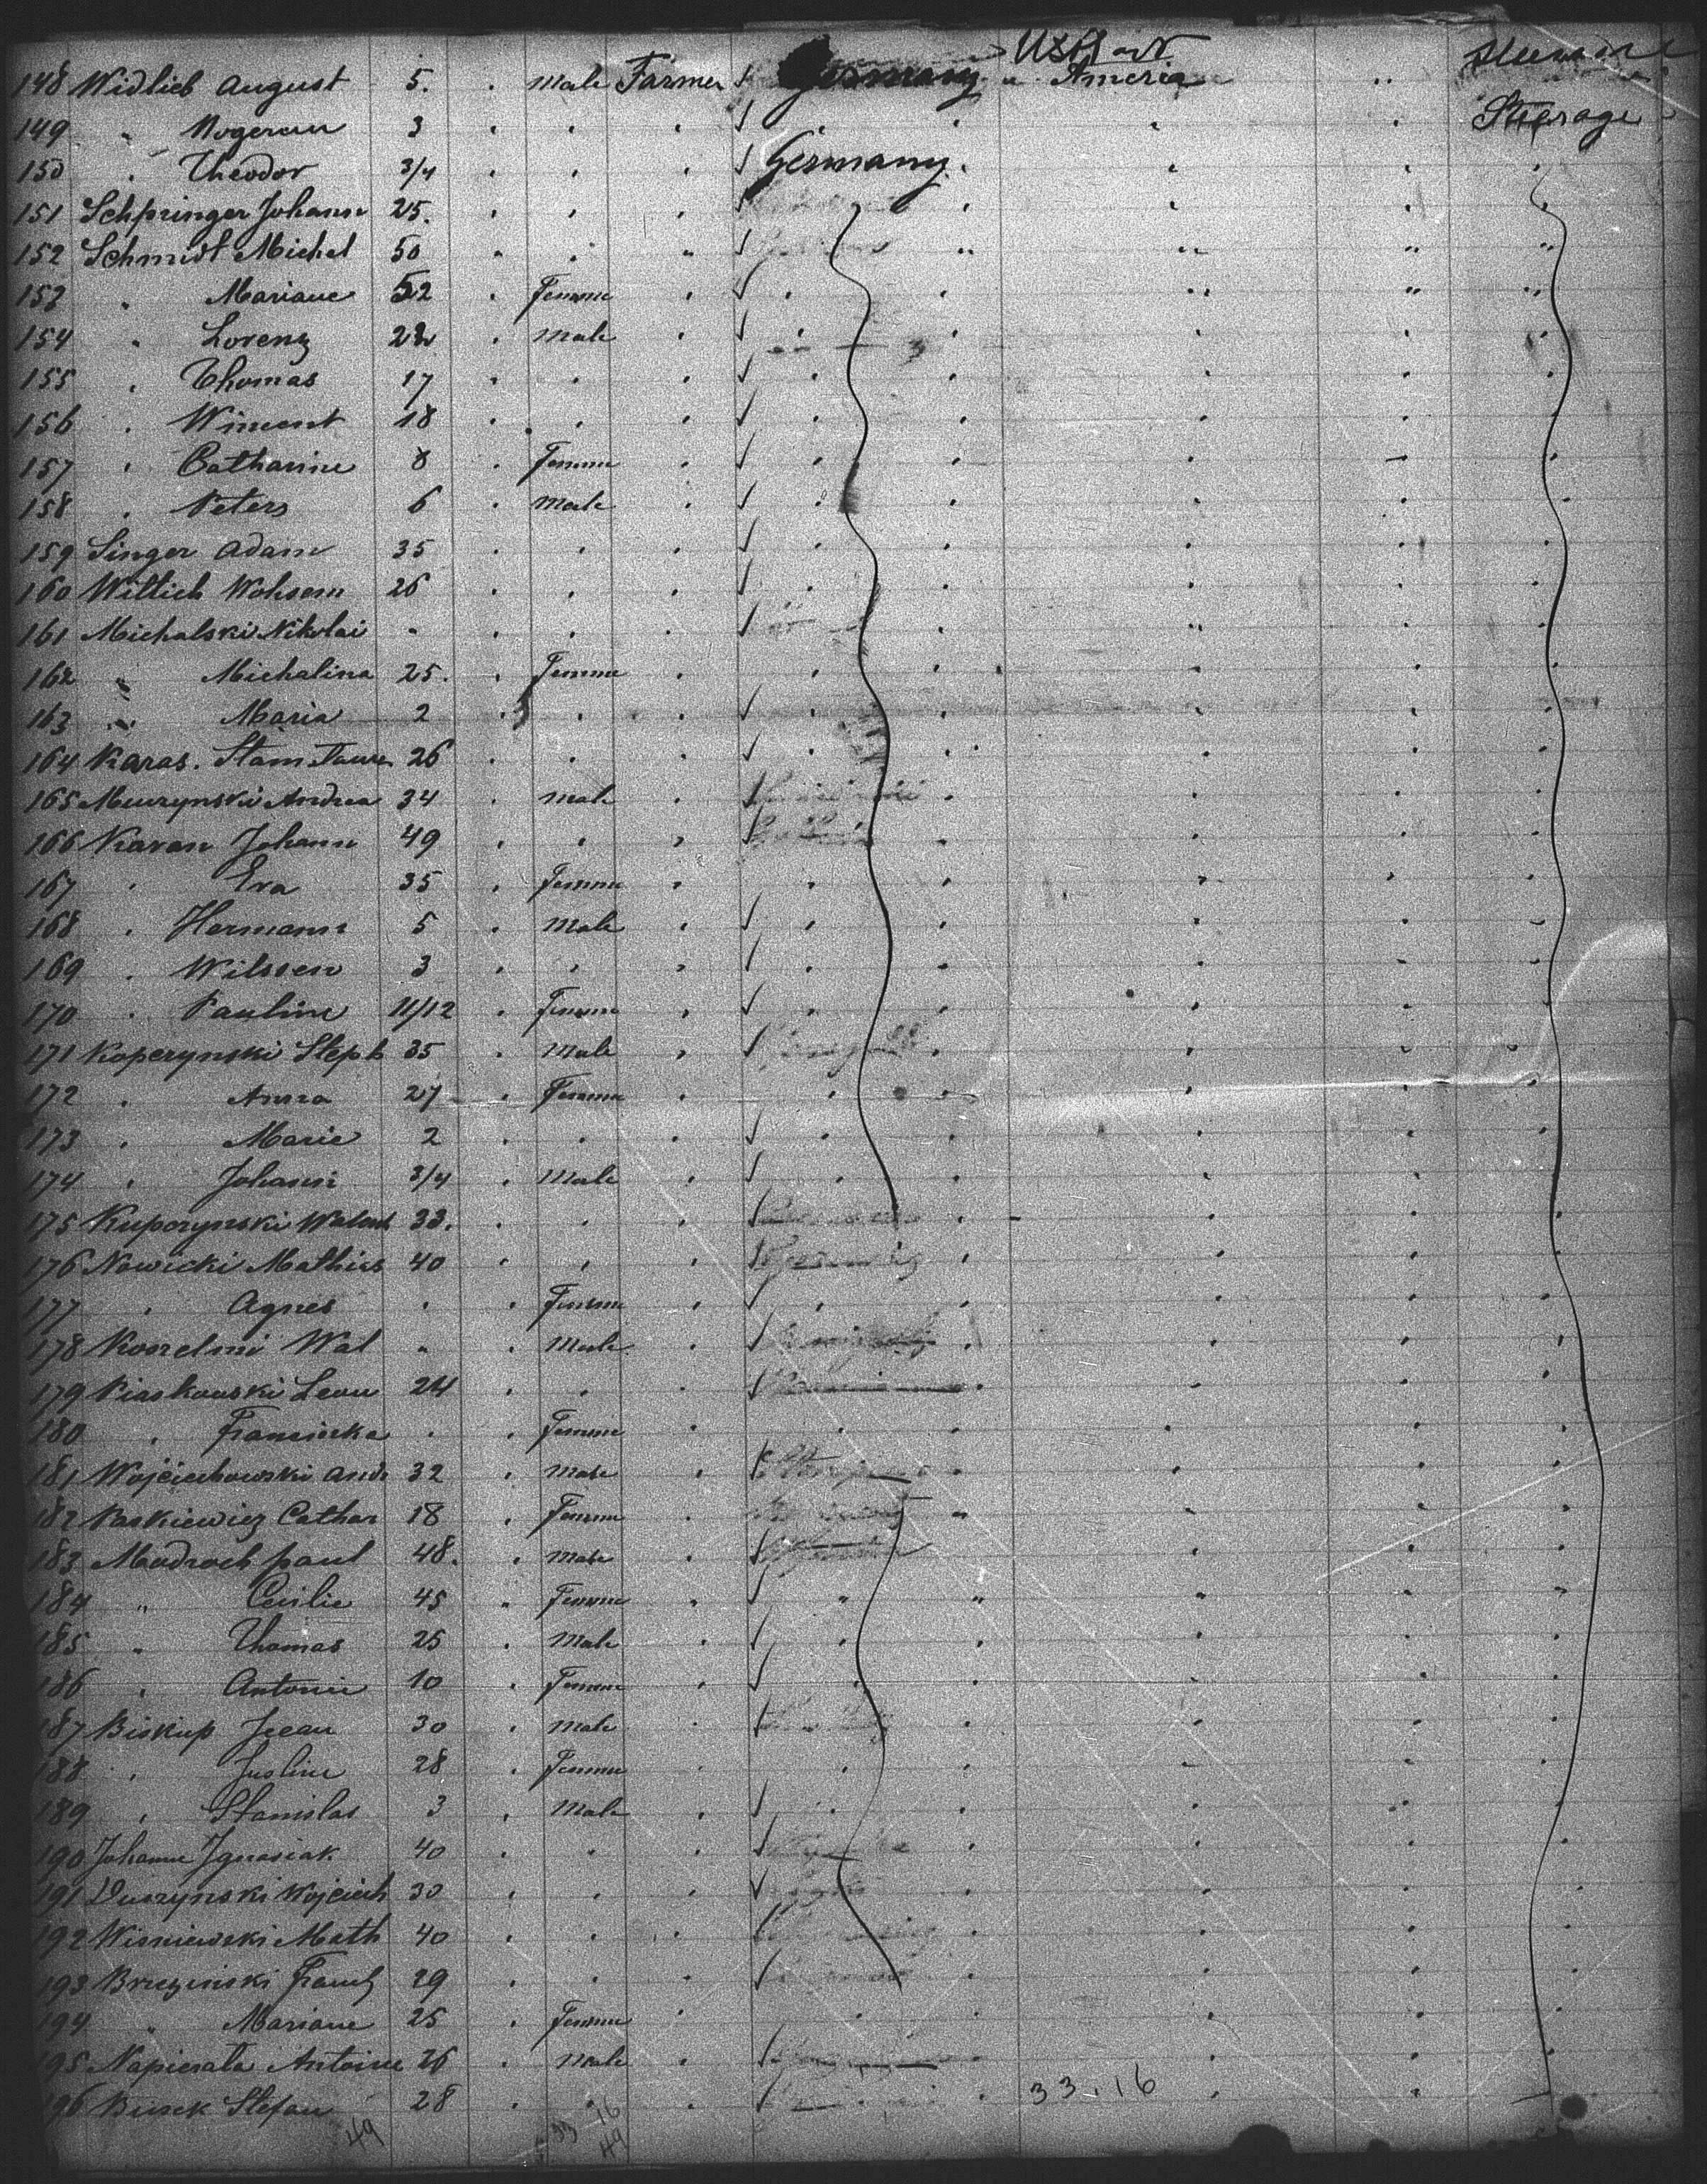 USA
148 Widlieb August 5. . Male Farmer Germany " America "
149 " 3 . . . . . . Steerage
150 . Theodor 3/4 . . . Germany . . . .
151 Schpringer Johann 25. . . . . . . .
152 Schmidt Michel 50 " . " " " " "
153 " Mariane 52 . Femme . . . " " "
154 " Lorenz 22 . Male . . . . . .
155 . Thomas 17 . . . . . . . .
156 . Wincent 18 . . . . . . .
157 . Catharine 8 . Femme . . . . - .
158 . Peters 6 . Male . . . . . .
159 Singer Adam 35 . . . . . . . .
160 Wittich 26 . . . . . . . .
161 Michalski Nikolai " . . . . " . .
162 " Michalina 25. . Femme . . . . . .
163 " Maria 2 . . . . . .
164 Karas. 26 . . . . . . .
165 Andrea 34 . Male . . . . .
166 Karan Johann 49 . . . . . . .
167 . Eva 35 . Femme . . . . . .
168 . Hermann 5 . Male . . . . . .
169 . Wilssen 3 . . . . . . . .
170 . Pauline 11/12 . Femme . . . . . .
171 Koperynski Steph 35 . Male . . . . .
172 . Anna 27 . Femme . . . . . .
173 . Marie 2 . . . . . . . .
174 . Johann 3/4 . Male . . . . . .
175 Kuporynski 33. . . . . . . .
176 Nowicki Mathias 40 . . . . . . .
177 . Agnes . . Femme . . . . . .
178 Wal " . Male . . . . .
179 Piaskowski Leon 24 . . . . . . .
180 . . . Femme . . . . . .
181 Wojciechowski And 32 . Male . . . .
182 Paskiewicz Cathar 18 . Femme . " . . .
183 Modroch paul 48. . Male . . . .
184 " Cecilie 45 " Femme " " " " . "
185 " Thomas 25 . Male . . . . . .
186 . Antonie 10 . Femme . . . . . .
187 Biskup Jean 30 . Male . . . . .
188 . Justine 28 . Femme . . . . . .
189 . Stanislas 3 . Male . . . . . .
190 Johann Ignasiak 40 . " . . . . .
191 Duszynski Wojciech 30 . . . . . . .
192 Wisniewski Math 40 . . . . . . .
193 29 . . . . . . .
194 " Mariane 25 . Femme . . . . . .
195 Napierala Antoine 26 . Male . . . . .
196 Stefan 28 . . . . 33.16 . . .
49 33 16
49